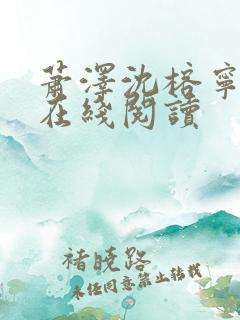 蕭澤沈棓寧
在綫閱讀
褚曉路
未經同意禁止轉載